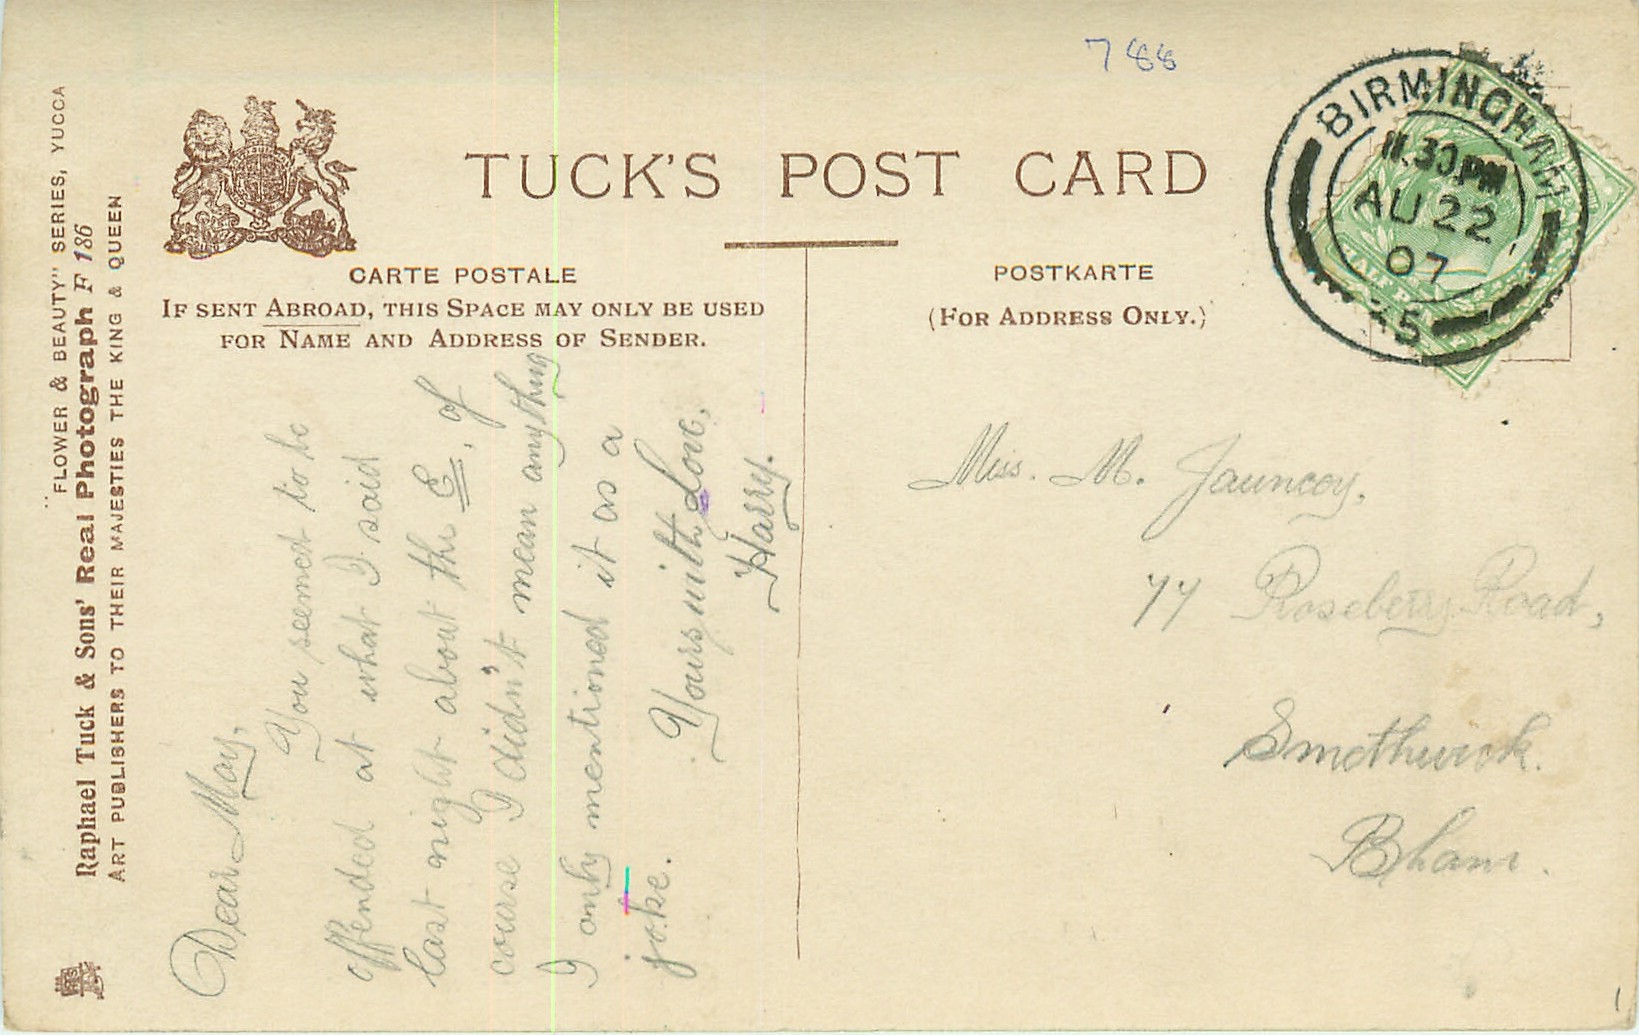 788
TUCK'S POST CARD
CARTE POSTALE
IF SENT ABROAD, THIS SPACE MAY ONLY BE USED
FOR NAME AND ADDRESS OF SENDER.
POSTKARTE
(FOR ADDRESS ONLY.)
BIRMINGHAM
11.30 PM
AU 22
07
45
"FLOWER & BEAUTY" SERIES, YUCCA
Raphael Tuck & Sons' Real Photograph F 186
ART PUBLISHERS TO THEIR MAJESTIES THE KING & QUEEN
Dear May,
You seemed to be
offended at what I said
last night about the E, of
course I didn't mean anything
I only mentioned it as a
joke.
Yours with Love,
Harry.
Miss. M. Jauncey,
77 Roseberry Road,
Smethwick.
Bham.